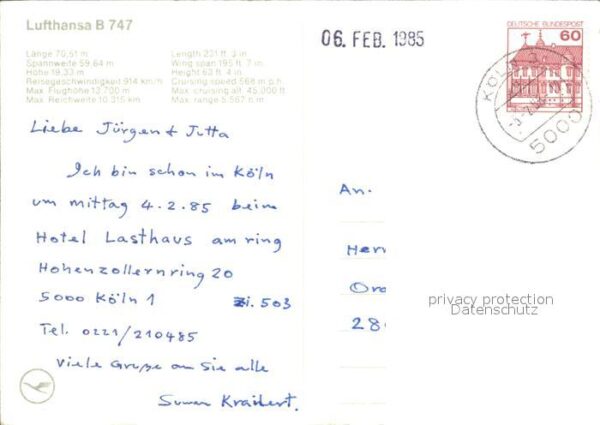 Lufthansa B 747
Länge 70,51 m
Spannweite 59,64 m
Höhe 19,33 m
Reisegeschwindigkeit 914 km/h
Max. Flughöhe 13.700 m
Max. Reichweite 10.315 km
Length 231 ft 3 in
Wing span 195 ft 7 in
Height 63 ft 4 in
Cruising speed 568 m.p.h.
Max. cruising alt. 45.000 ft
Max. range 5.567 n.m
06. FEB. 1985
DEUTSCHE BUNDESPOST
60
KÖLN
5000
Liebe Jürgen & Jutta
Ich bin schon im Köln
um mittag 4.2.85 beim
Hotel Lasthaus am ring
Hohenzollernring 20
5000 Köln 1 Zi. 503
Tel. 0221/210485
Viele Grüße an Sie alle
An.
Her
Ora
28
privacy protection
Datenschutz